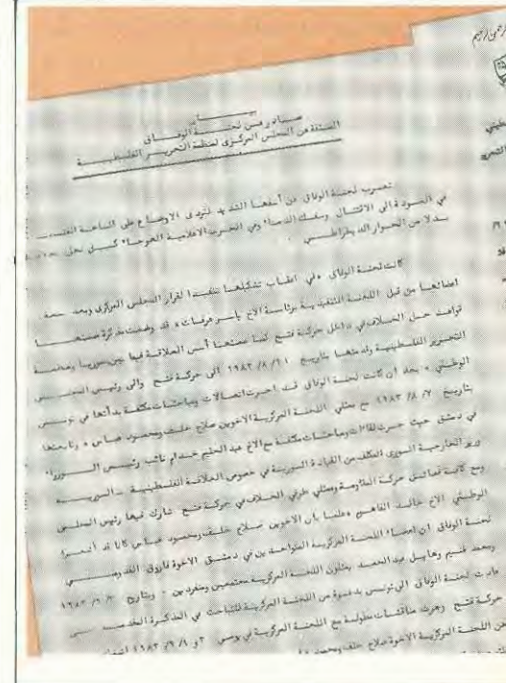 بيـــــان
صـادر عن لجنـــة الوفـــاق
المنبثقة عن المجلس المركزى لمنظمة التحريـر الفلسطينيـــة
تعـرب لجنـة الوفاق عن أسفهـا الشديد لتردى الاوضـاع على الساحـة
في العـودة الى الاقتتال وسفـك الدمـاء وفي الحـرب الاعلاميـة الهوجـاء
بـدلا من الحـوار الديمقراطـــي .
كانت لجنـة الوفاق وفي اعقـاب تشكيلهـا تنفيـذا لقرار المجلس المركزى وبعد
اعضائهـا من قبل اللجنـة التنفيذيـة برئاسـة الاخ ياسـر عرفـات ، قد وضعت مذكرة ضمنتهـــا
قواعـد حـل الخـلاف في داخل حركـة فتـح كمـا ضمنتهـا أسس العلاقـة فيما بين سوريـا ومنظمـة
التحريـر الفلسطينيـة وقدمتهـا بتاريـخ ١٩٨٣/٨/٢١ الى حركـة فتـح والى رئيـس المجلـــس
الوطنـي ، بعـد ان كانت لجنـة الوفاق قـد اجـرت اتصـالات ومباحثـات مكثفـة بدأتهـا في تونـس
بتاريـخ ١٩٨٣/٨/٧ مع ممثلي اللجنـة المركزيـة الاخوين صلاح خلـف ومحمـود عباس ، وتابعتهـا
في دمشـق حيـث جـرت لقاءات ومباحثـات مكثفـة مع الاخ عبد الحليم خـدام نائـب رئيـس الـــوزراء
وزيـر الخارجيـة السـورى المكلف من القيـادة السوريـة في خصوص العلاقـة الفلسطينيـة ـ السوريــــة
ومع كافـة فصائـل حركـة المقاومـة وممثلي طرفي الخـلاف في حركـة فتـح شارك فيهـا رئيس المجلس
الوطنـي الاخ خالـد الفاهـم علمـا بـأن الاخويـن صـلاح خلـف ومحمـود عبـاس كانـا قـد
لجنـة الوفاق ان اعضـاء اللجنـة المركزيـة المتواجـدين في دمشـق الاخوة فاروق القدومــــي
ومحمد غنيـم وهايـل عبد الحميـد يمثلون اللجنـة المركزيـة مجتمعين ومنفردين . وبتاريخ
عادت لجنـة الوفاق الى تونـس بدعـوة من اللجنـة المركزيـة للتباحـث في المذكـرة المقدمـــة
حركـة فتـح وجرت مناقشـات مطولـة مع اللجنـة المركزيـة في
عن اللجنـة المركزيـة الاخوة صلاح خلـف ومحمـود